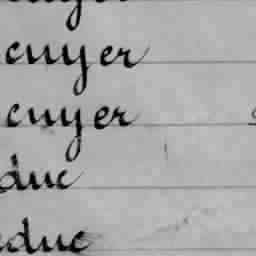 cuyer
cuyer
duc
educ